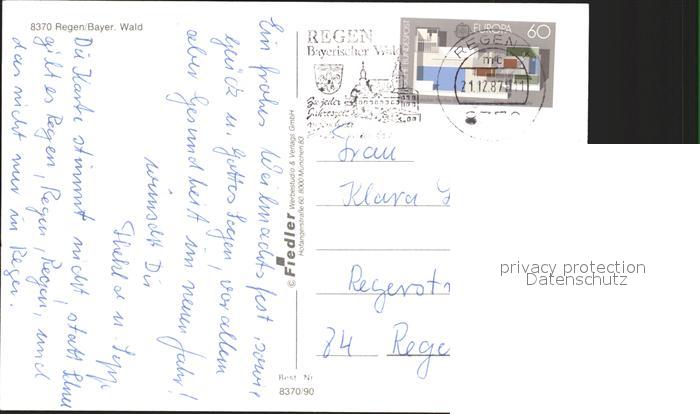 8370 Regen/Bayer. Wald
Ein frohes Weihnachtsfest, sowie
Glück u. Gottes Segen, vor allem
aber Gesundheit im neuen Jahr!
wünscht Dir
Thekla u. Sepp
Die Karte stimmt nicht, statt Schnee
gibt es Regen, Regen, Regen, und
das nicht nur in Regen.
© Fiedler Werbestudio & Verlags GmbH
Hofangerstraße 60 8000 München 83
Best. Nr.
8370/90
REGEN
Bayerischer Wald
Zu jeder
Jahreszeit
DEUTSCHE BUNDESPOST
EUROPA
60
REGEN
mc
21.12.87
8370
Frau
Klara
Regerstr
84 Rege
privacy protection
Datenschutz